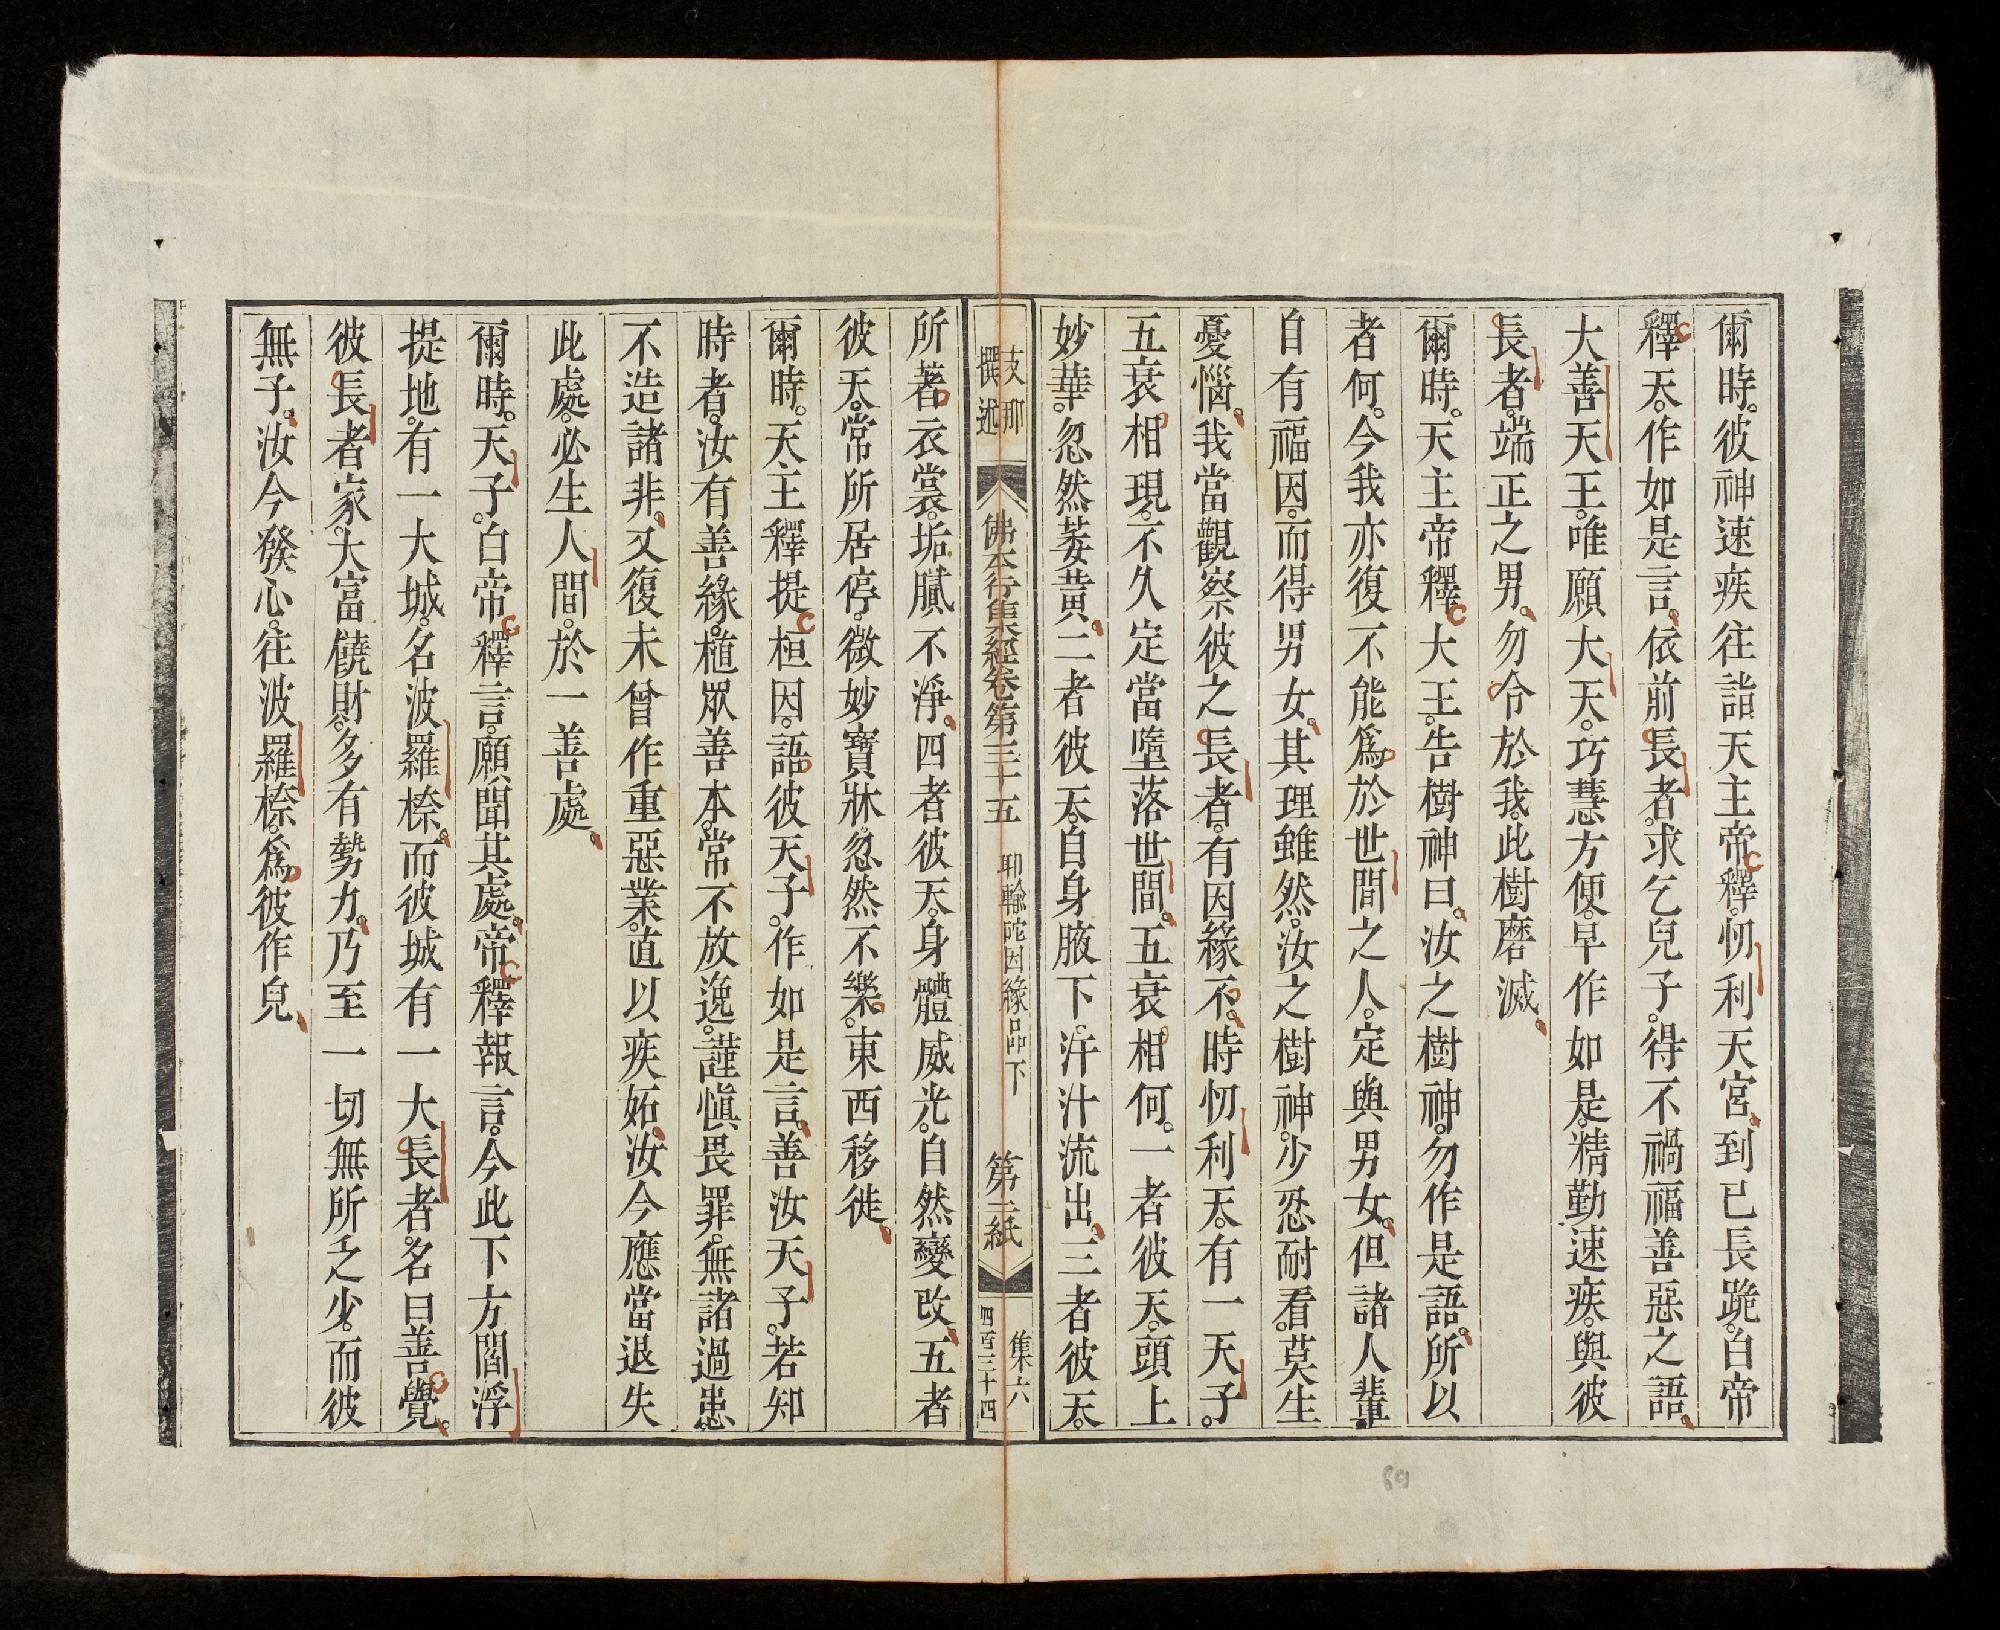 爾時。彼神速疾往詣天主帝釋。忉利天宮。到已長跪。白帝
釋天。作如是言。依前長者。求乞兒子。得不禍福善惡之語。
大善天王。唯願大天。巧慧方便。早作如是。精勤速疾。與彼
長者。端正之男。勿令於我。此樹磨滅。
爾時。天主帝釋大王。告樹神曰。汝之樹神。勿作是語。所以
者何。今我亦復不能爲於世間之人。定與男女。但諸人輩。
自有福因。而得男女。其理雖然。汝之樹神。少忍耐看。莫生
憂惱。我當觀察彼之長者。有因緣不。時忉利天。有一天子。
五衰相現。不久定當墮落世間。五衰相何。一者彼天。頭上
妙華。忽然萎黄。二者彼天。自身腋下。汗汁流出。三者彼天。
支那
撰述
佛本行集經卷第三十五 耶輸陀因緣品下 第三紙
集六
四百三十四
所著衣裳。垢膩不淨。四者彼天。身體威光。自然變改。五者
彼天。常所居停。微妙寶牀。忽然不樂。東西移徙。
爾時。天主釋提桓因。語彼天子。作如是言。善汝天子。若知
時者。汝有善緣。植眾善本。常不放逸。謹慎畏罪。無諸過患。
不造諸非。又復未曾作重惡業。直以疾妬。汝今應當退失
此處。必生人間。於一善處。
爾時。天子。白帝釋言。願聞其處。帝釋報言。今此下方閻浮
提地。有一大城。名波羅㮈。而彼城有一大長者。名曰善覺。
彼長者家。大富饒財。多有勢力。乃至一切無所乏少。而彼
無子。汝今發心。往波羅㮈。爲彼作兒。
69